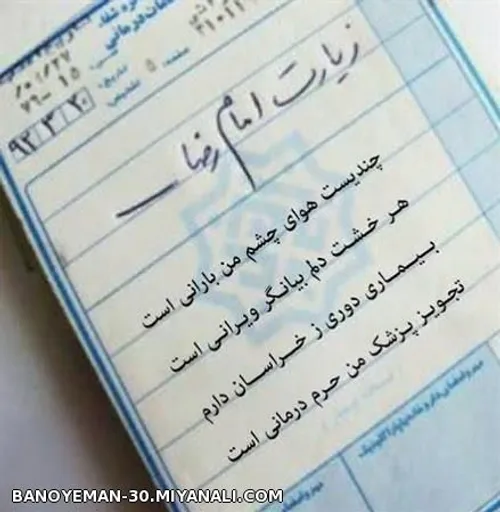 خدمات درمانی
صفحه: ۵
تاریخ:
۹۲ ۳ ۲۰
زیارت امام رضا
چندیست هوای چشم من بارانی است
هر خشت دلم بیانگر ویرانی است
بیماری دوری ز خراسان دارم
تجویز پزشک من حرم درمانی است
BANOYEMAN-30.MIYANALI.COM